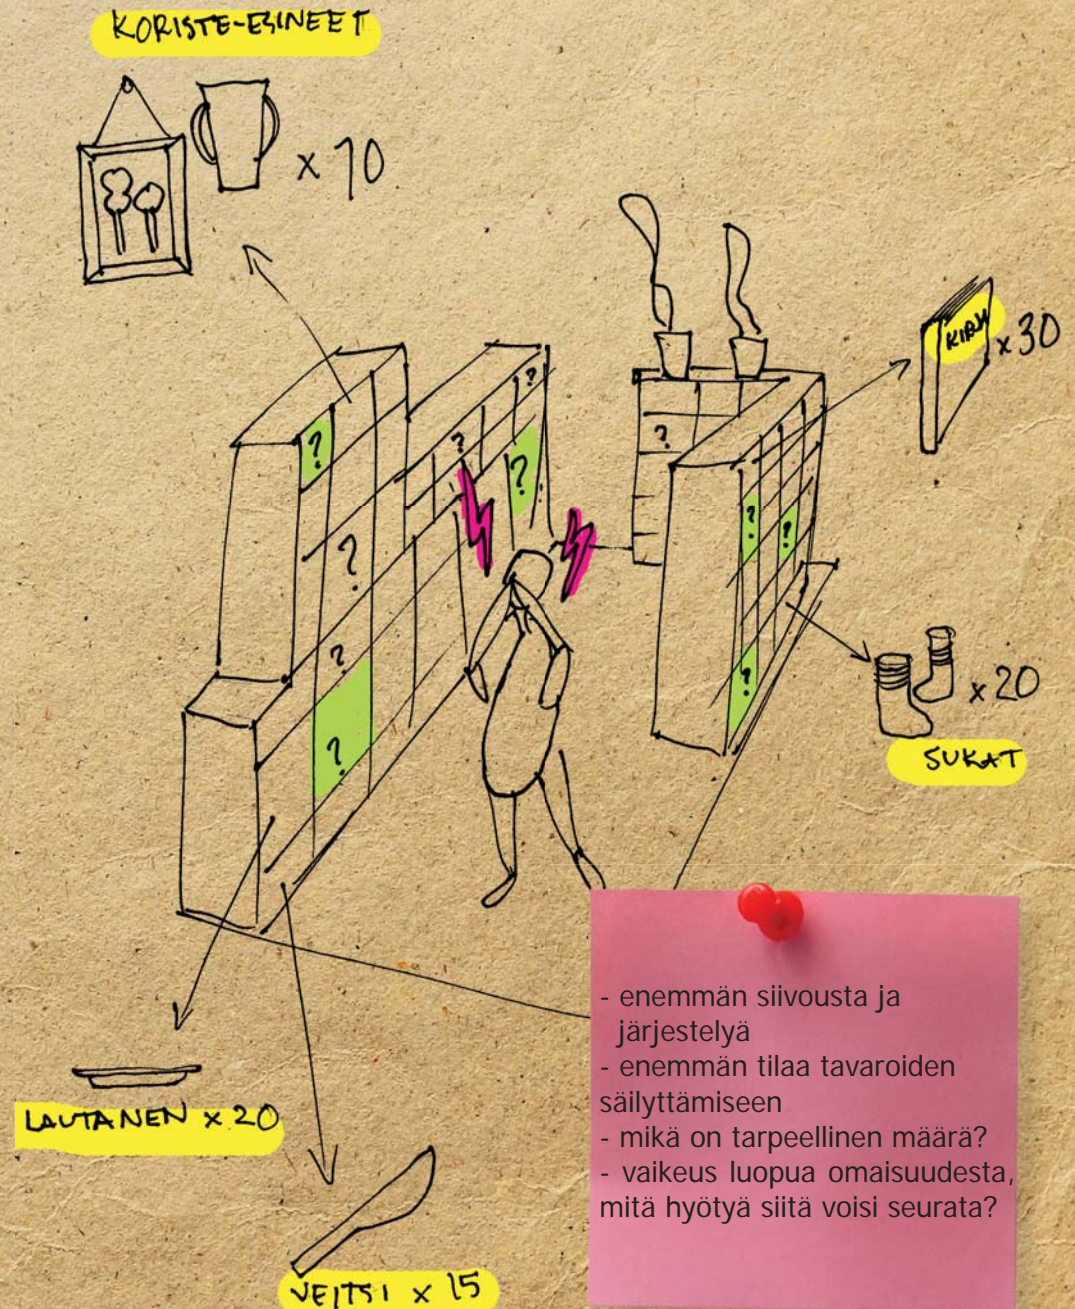 KORISTE-ESINEET
x 70
KIRJA
x 30
?
?
?
?
?
?
?
?
?
?
?
x 20
SUKAT
LAUTANEN x 20
VEITSI x 15
- enemmän siivousta ja
järjestelyä
- enemmän tilaa tavaroiden
säilyttämiseen
- mikä on tarpeellinen määrä?
- vaikeus luopua omaisuudesta,
mitä hyötyä siitä voisi seurata?